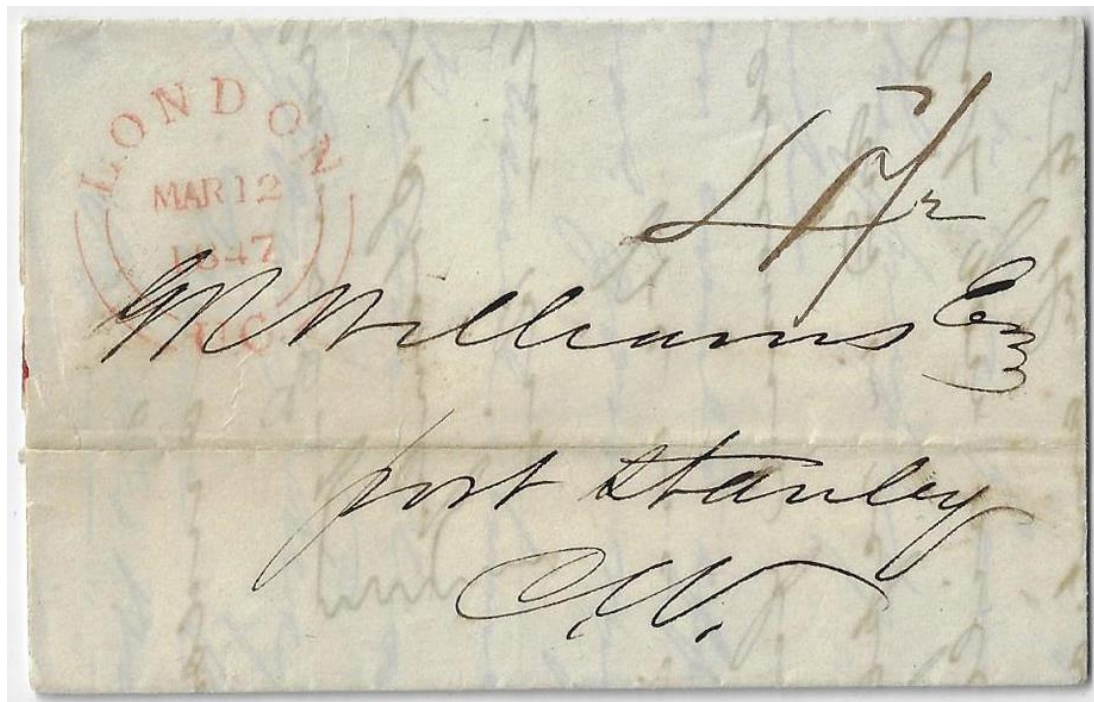 LONDON
MAR 12
1847
U.C.
G R Williams Esq
port Stanley
C.W.